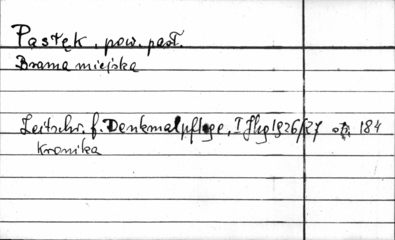 Pasłęk, pow. pasł.
Brama miejska
Zeitschr. f. Denkmalpflege, I Jhg 1926/27 str. 184
Kronika